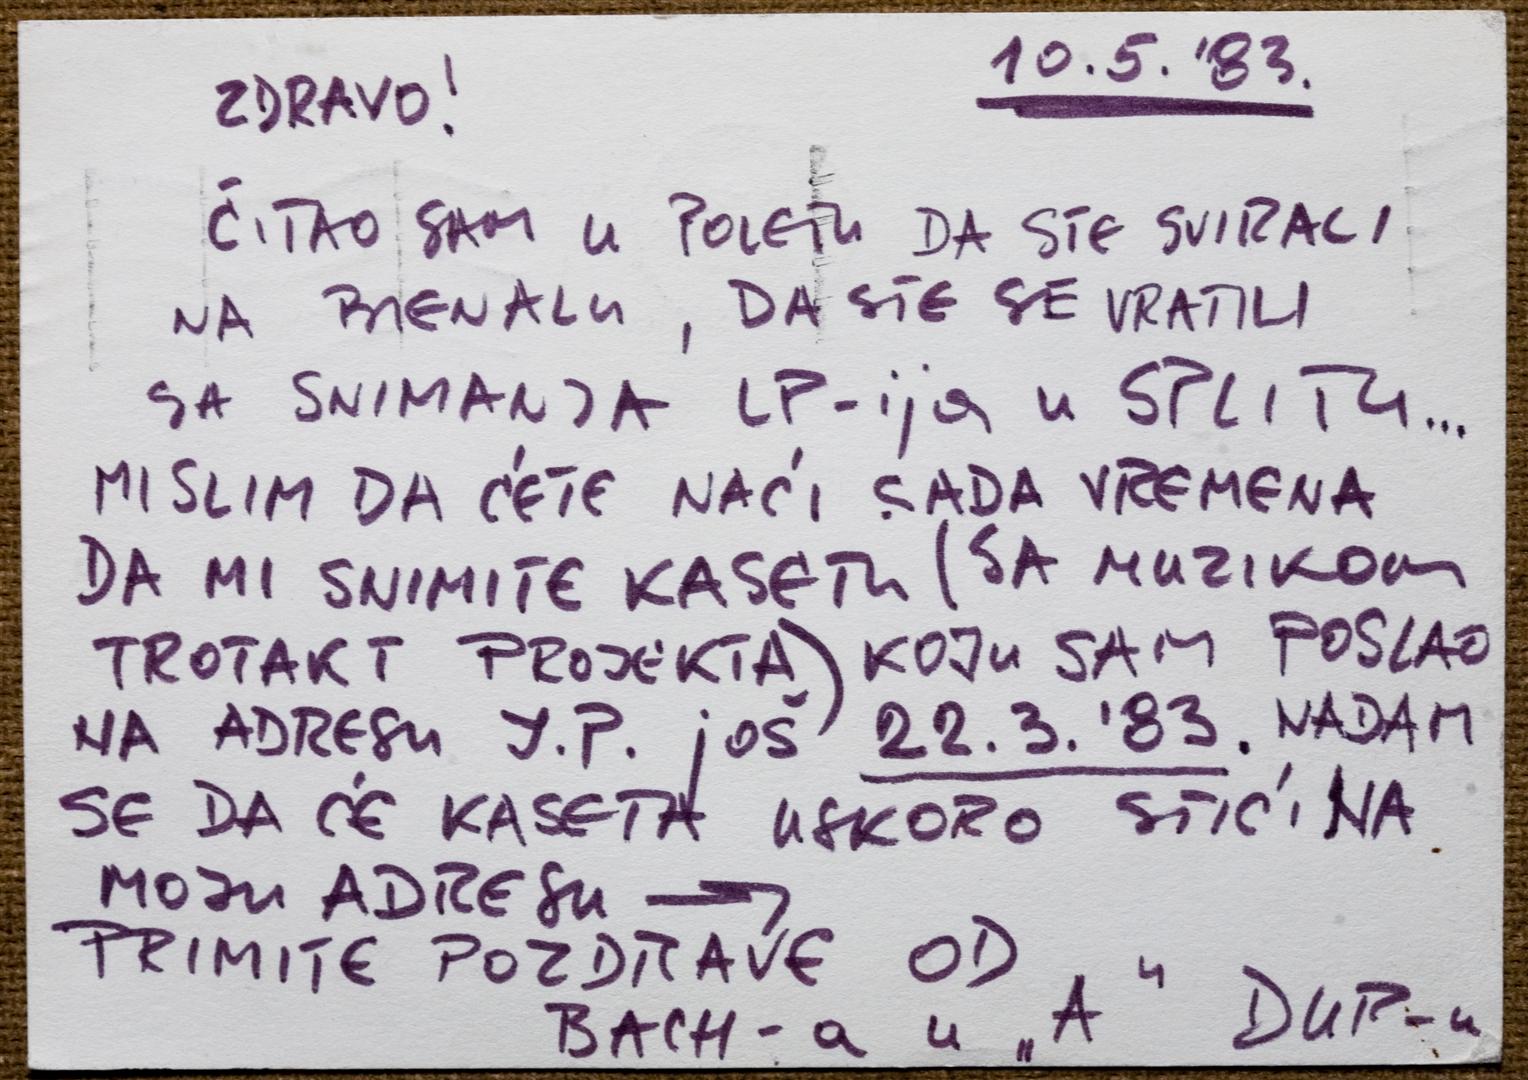 10.5.'83.
ZDRAVO!
ČITAO SAM U POLETU DA STE SVIRALI
NA BIENALU, DA STE SE VRATILI
SA SNIMANJA LP-ija u SPLITU...
MISLIM DA ĆETE NAĆI SADA VREMENA
DA MI SNIMITE KASETU (SA MUZIKOM
TROTAKT PROJEKTA) KOJU SAM POSLAO
NA ADRESU Y.P. još 22.3.'83. NADAM
SE DA ĆE KASETA USKORO STIĆI NA
MOJU ADRESU →
PRIMITE POZDRAVE OD
BACH-a u „A“ DUR-u